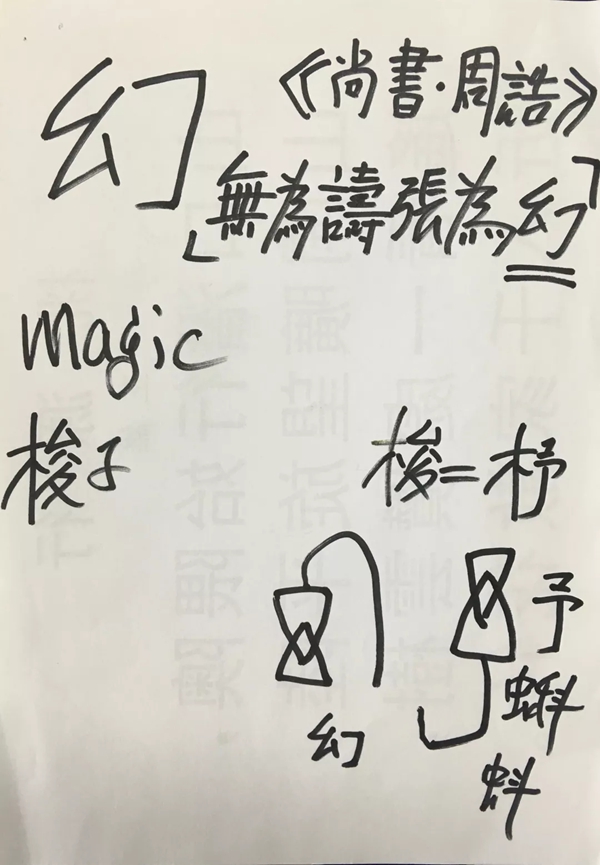 幻
《尚書·周誥》
「無為譸張為幻」
magic
梭子
梭=杼
予
幻
蝌
蚪